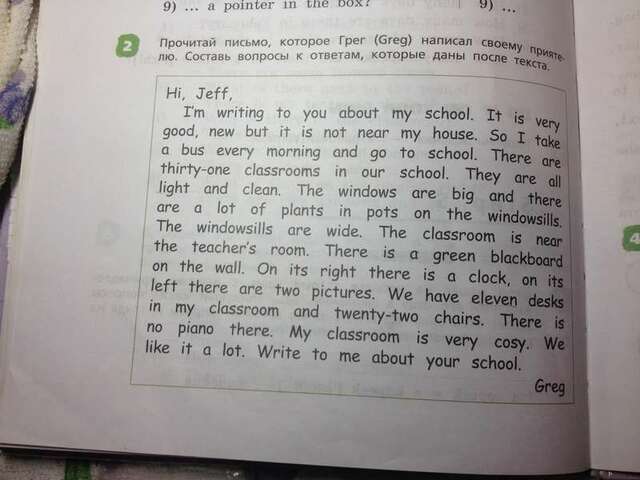 9) ... a pointer in the box? 9) ...
2 Прочитай письмо, которое Грег (Greg) написал своему прияте-
лю. Составь вопросы к ответам, которые даны после текста.
Hi, Jeff,
I'm writing to you about my school. It is very
good, new but it is not near my house. So I take
a bus every morning and go to school. There are
thirty-one classrooms in our school. They are all
light and clean. The windows are big and there
are a lot of plants in pots on the windowsills.
The windowsills are wide. The classroom is near
the teacher's room. There is a green blackboard
on the wall. On its right there is a clock, on its
left there are two pictures. We have eleven desks
in my classroom and twenty-two chairs. There is
no piano there. My classroom is very cosy. We
like it a lot. Write to me about your school.
Greg
4